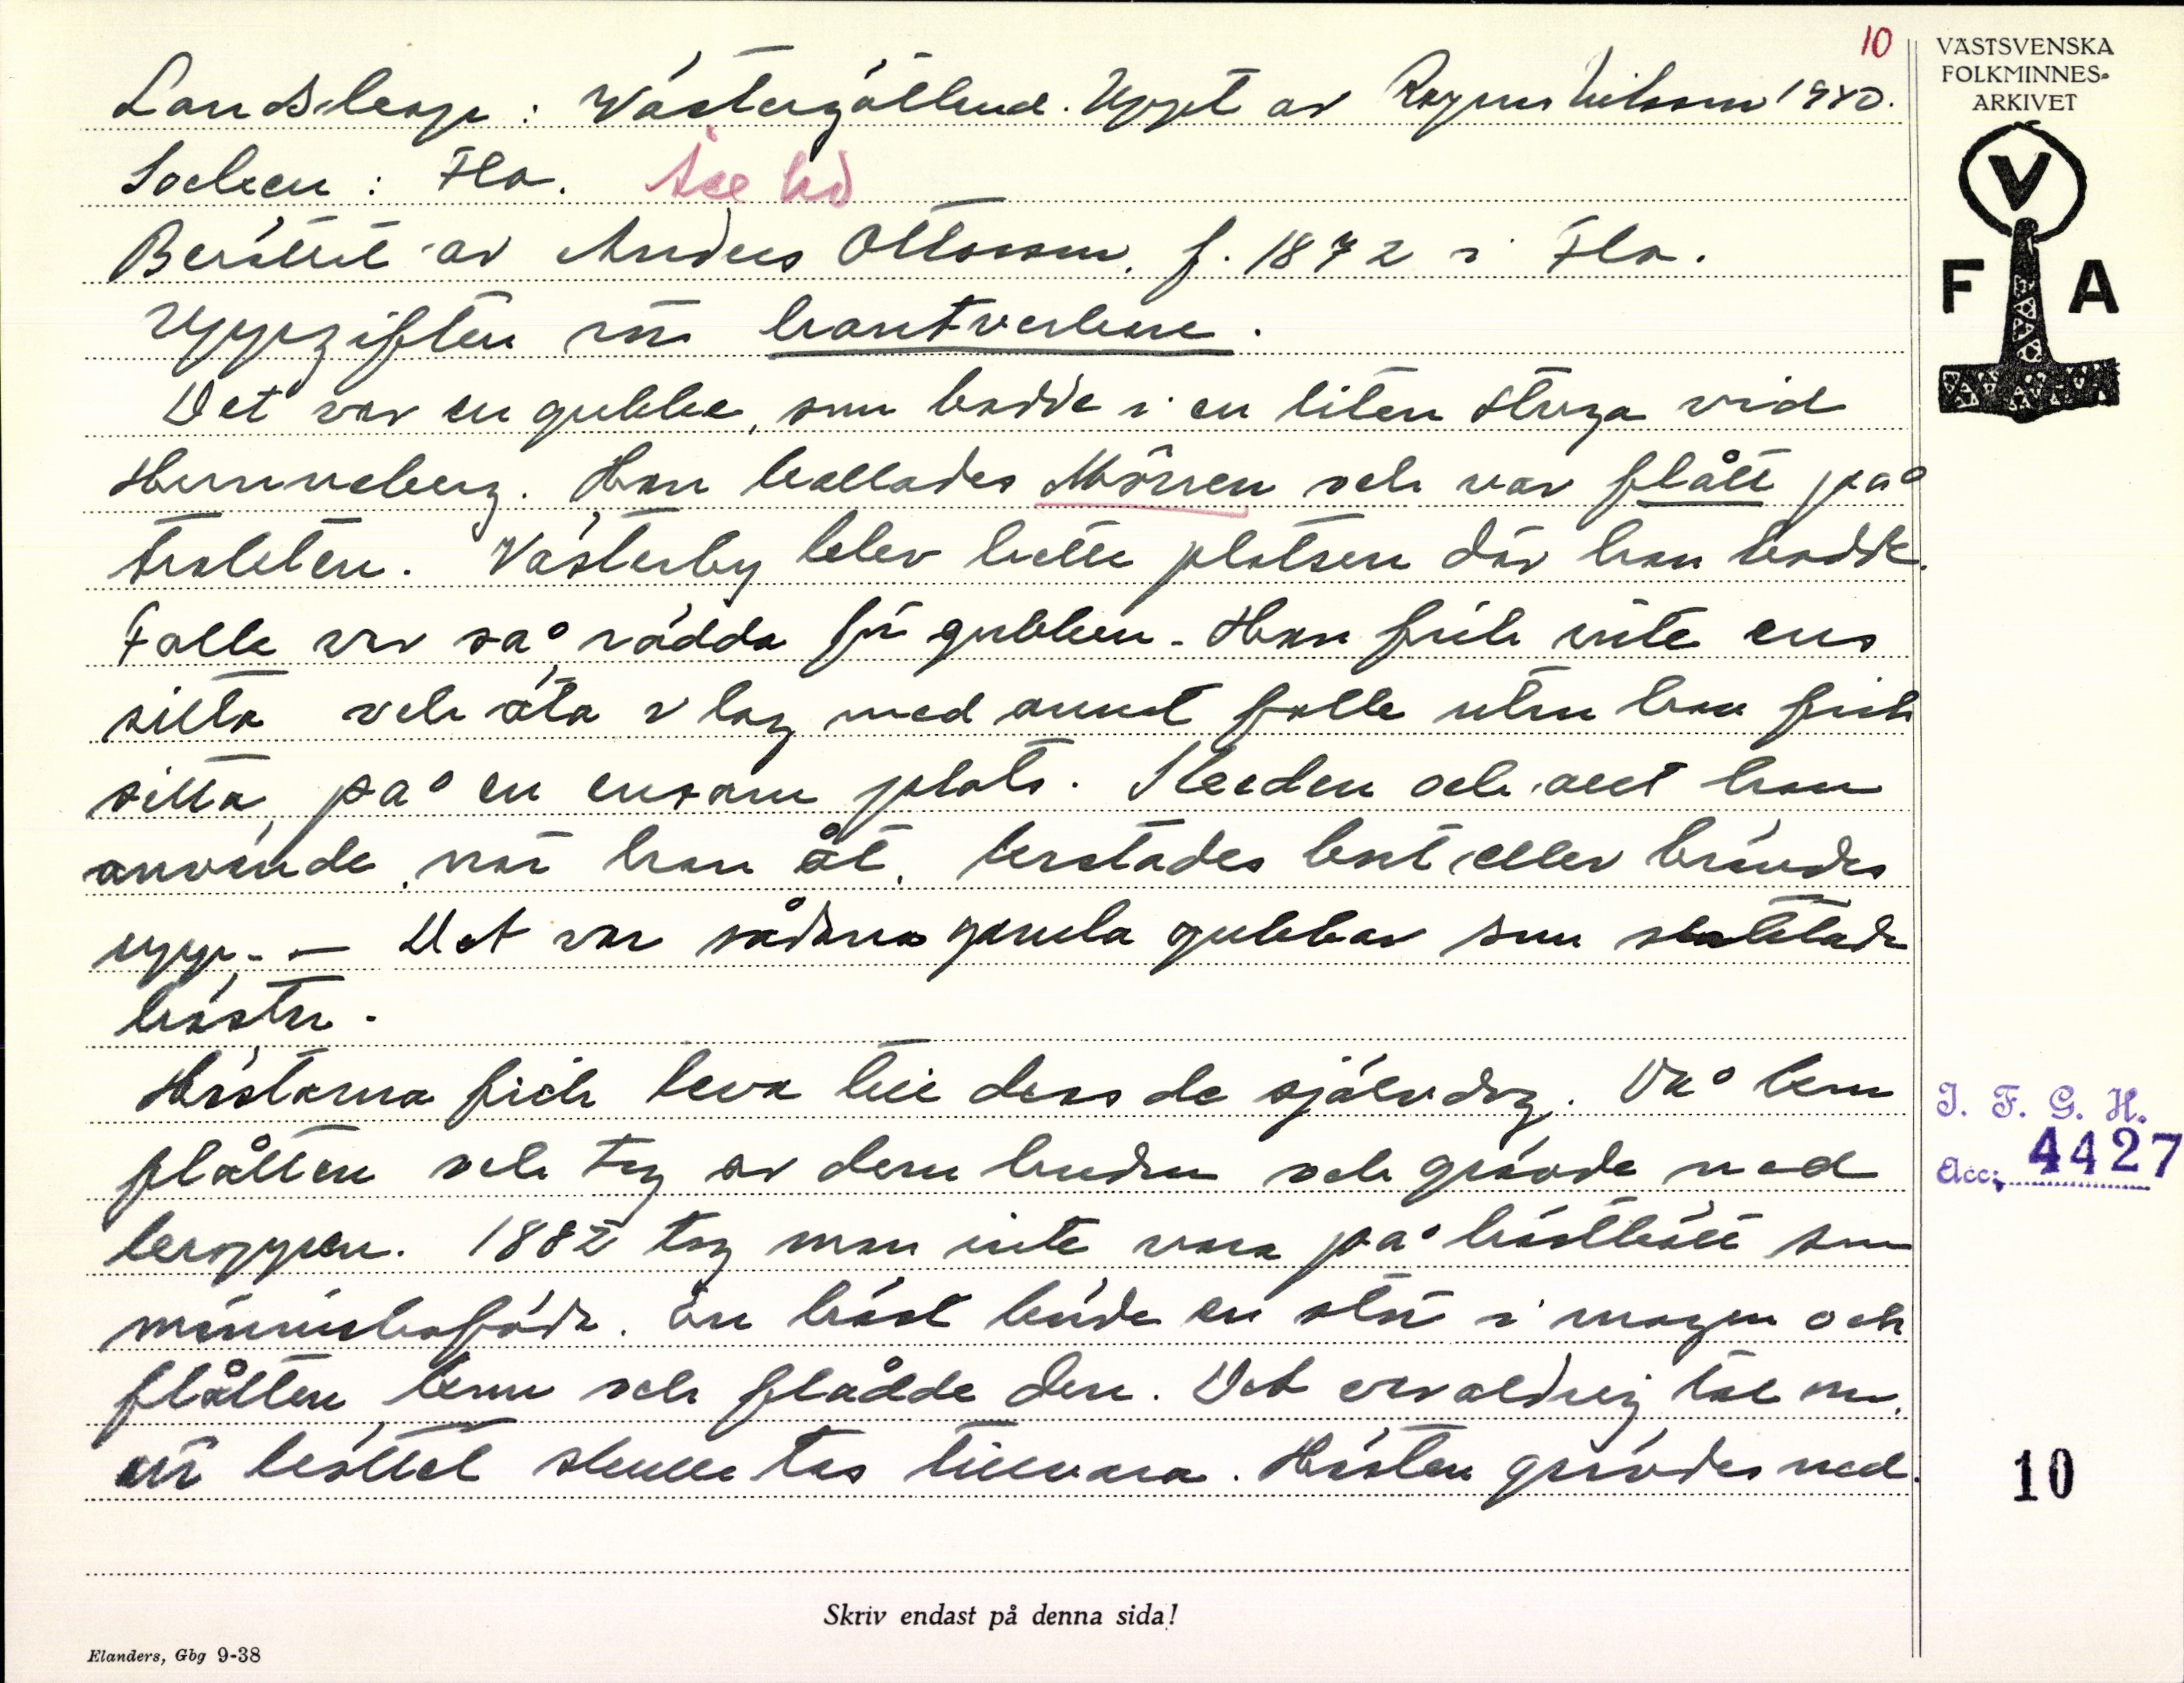 10
Landskap: Västergötland. Uppt. av Ragnar Nilsson 1940.
Socken: Flo. Åse hd
Berättat av Anders Ottosson, f. 1872 i Flo.
Uppgiften om hantverkare.
Det var en gubbe, som bodde i en liten stuga vid
Hunneberg. Han kallades Mörren och var flått på
trakten. Västerby klev hette platsen där han bodde.
Folk var så rädda för gubben. Han fick inte ens
sitta och äta i lag med annat folk utan han fick
sitta på en ensam plats. Skeden och allt han
använde, när han åt, kastades bort eller brändes
upp. – Det var sådana gamla gubbar som slaktade
hästar.
Hästarna fick leva till dess de självdog. Då kom
flåtten och tog av dem huden och grävde ned
kroppen. 1882 tog man inte vara på hästkött som
människoföda. En häst hade en stör i magen och
flåtten kom och flådde den. Det var aldrig tal om,
att köttet skulle tas tillvara. Hästen grävdes ned.
VÄSTSVENSKA
FOLKMINNES-
ARKIVET
V
F A
I. F. G. H.
Acc: 4427
10
Skriv endast på denna sida!
Elanders, Gbg 9-38